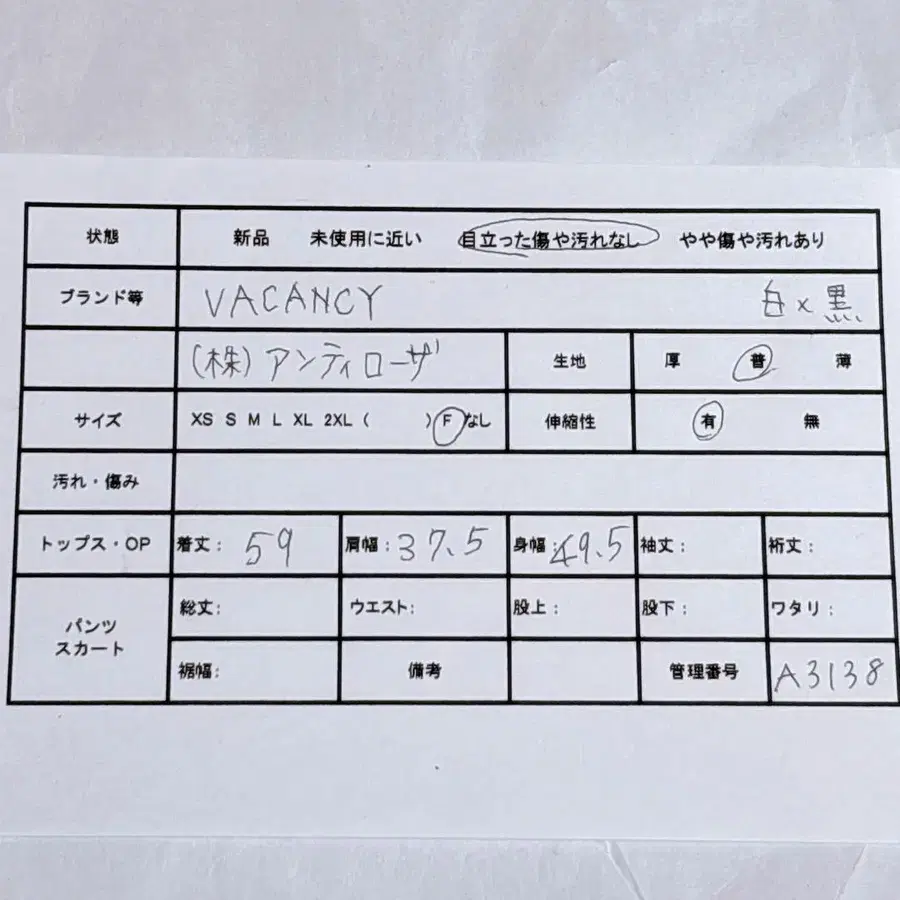 状態 新品 未使用に近い 目立った傷や汚れなし やや傷や汚れあり
ブランド等 VACANCY 白×黒
(株)アンティローザ 生地 厚 普 薄
サイズ XS S M L XL 2XL ( ) F なし 伸縮性 有 無
汚れ・傷み
トップス・OP 着丈: 59 肩幅: 37.5 身幅: 49.5 袖丈: 裄丈:
パンツ スカート 総丈: ウエスト: 股上: 股下: ワタリ:
裾幅: 備考 管理番号 A3138